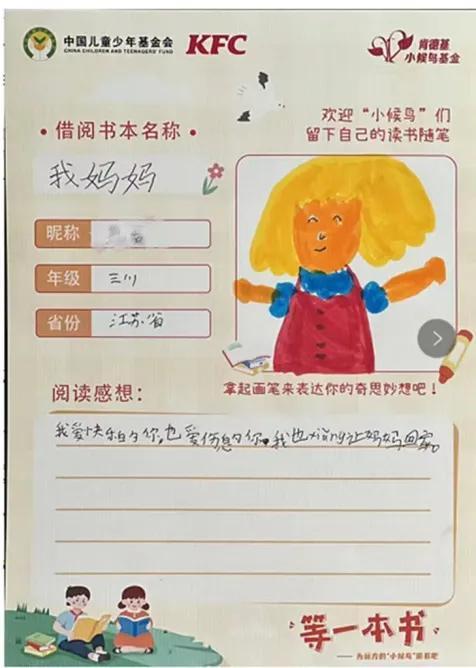 中国儿童少年基金会
CHINA CHILDREN AND TEENAGERS' FUND
KFC
肯德基
小候鸟基金
欢迎“小候鸟”们
留下自己的读书随笔
• 借阅书本名称 •
我妈妈
昵称
年级 三川
省份 江苏省
拿起画笔来表达你的奇思妙想吧!
阅读感想:
我爱快乐的你,也爱伤息的你。我也 让妈妈回家。
等一本书